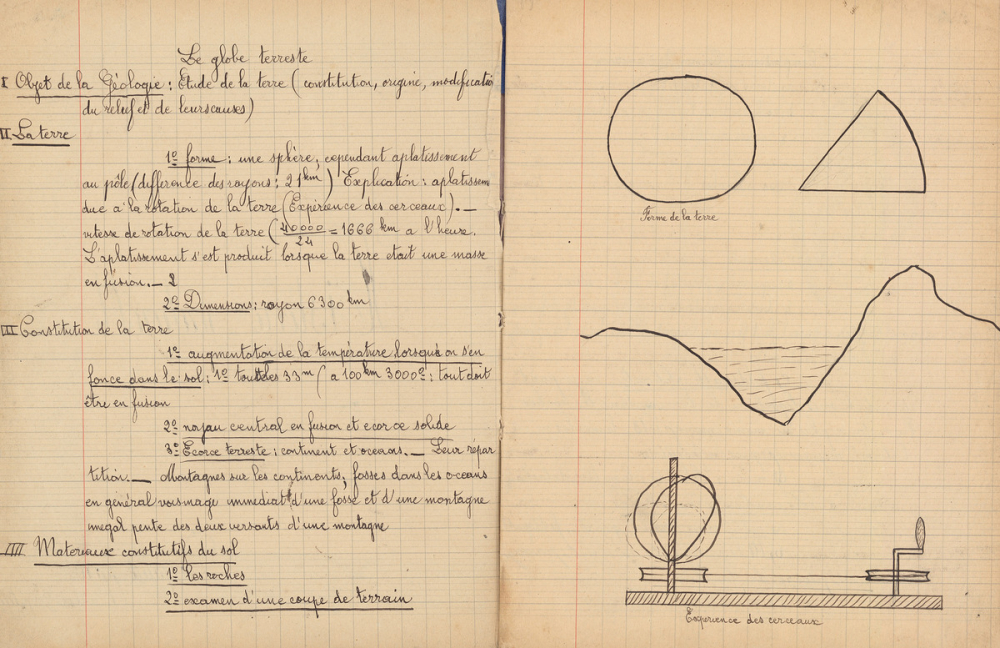 Le globe terreste
I Objet de la Géologie : Etude de la terre ( constitution, origine, modificatio
du relief et de leurs causes)
II. La terre
1º forme : une sphère, cependant aplatissement
au pôle (difference des rayons : 21 km ) Explication : aplatissem
due a la rotation de la terre (Expérience des cerceaux). —
vitesse de rotation de la terre ( 40000/24 = 1666 km a l'heure.
L'aplatissement s'est produit lorsque la terre etait une masse
en fusion. — 2
2º Dimensions : rayon 6300 km
III Constitution de la terre
1º augmentation de la température lorsque on s'en
fonce dans le sol : 1º toutes les 33 m ( a 100 km 3000º : tout doit
être en fusion
2º noyau central en fusion et ecorce solide
3º Ecorce terreste : continent et oceans. — Leur répar
tition. — Montagnes sur les continents, fosses dans les oceans
en général voisinage immediat d'une fosse et d'une montagne
inegal pente des deux versants d'une montagne
IIII Materiaux constitutifs du sol
1º les roches
2º examen d'une coupe de terrain
Forme de la terre
Expérience des cerceaux